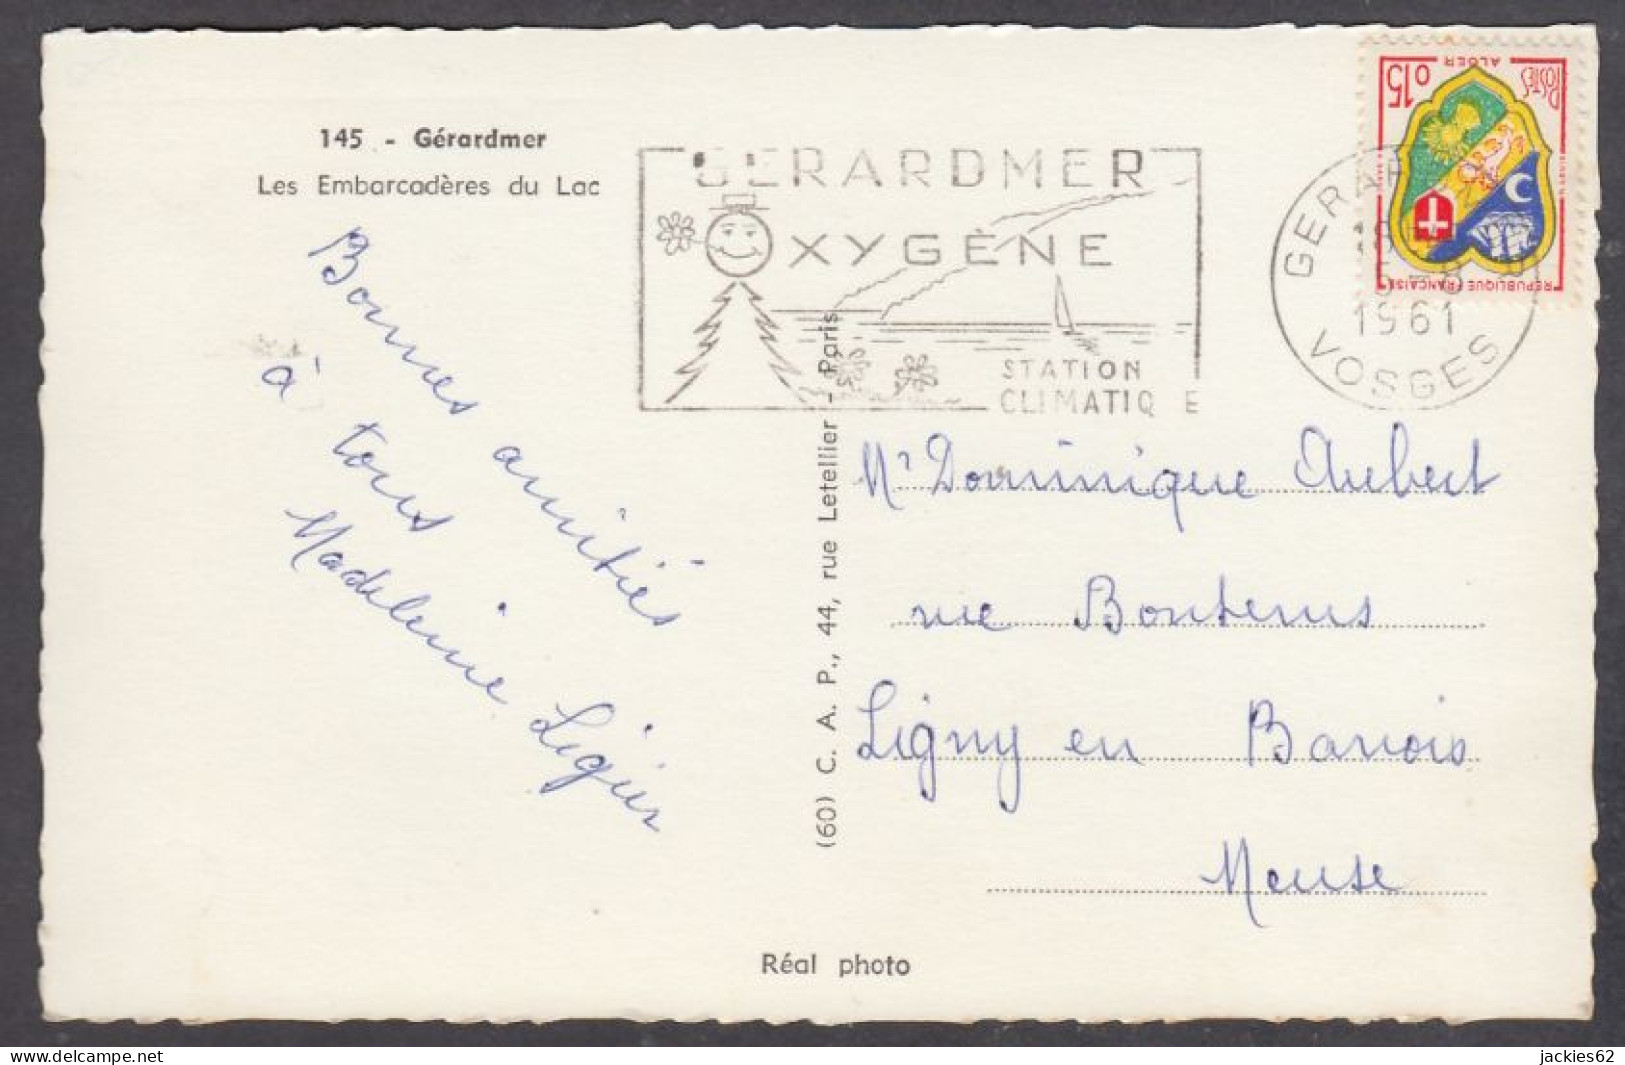 145 - Gérardmer
Les Embarcadères du Lac
Bonnes amitiés
à tous
Madeleine Ligier
GERARDMER
OXYGÈNE
STATION
CLIMATIQ E
GERAR
18
5-8
1961
VOSGES
POSTES
ALGER
0.15
REPUBLIQUE FRANÇAISE
(60) C. A. P., 44, rue Letellier - Paris
Mr Dominique Aubert
rue Bontems
Ligny en Barrois
Meuse
Réal photo
delcampe.net
jackies62